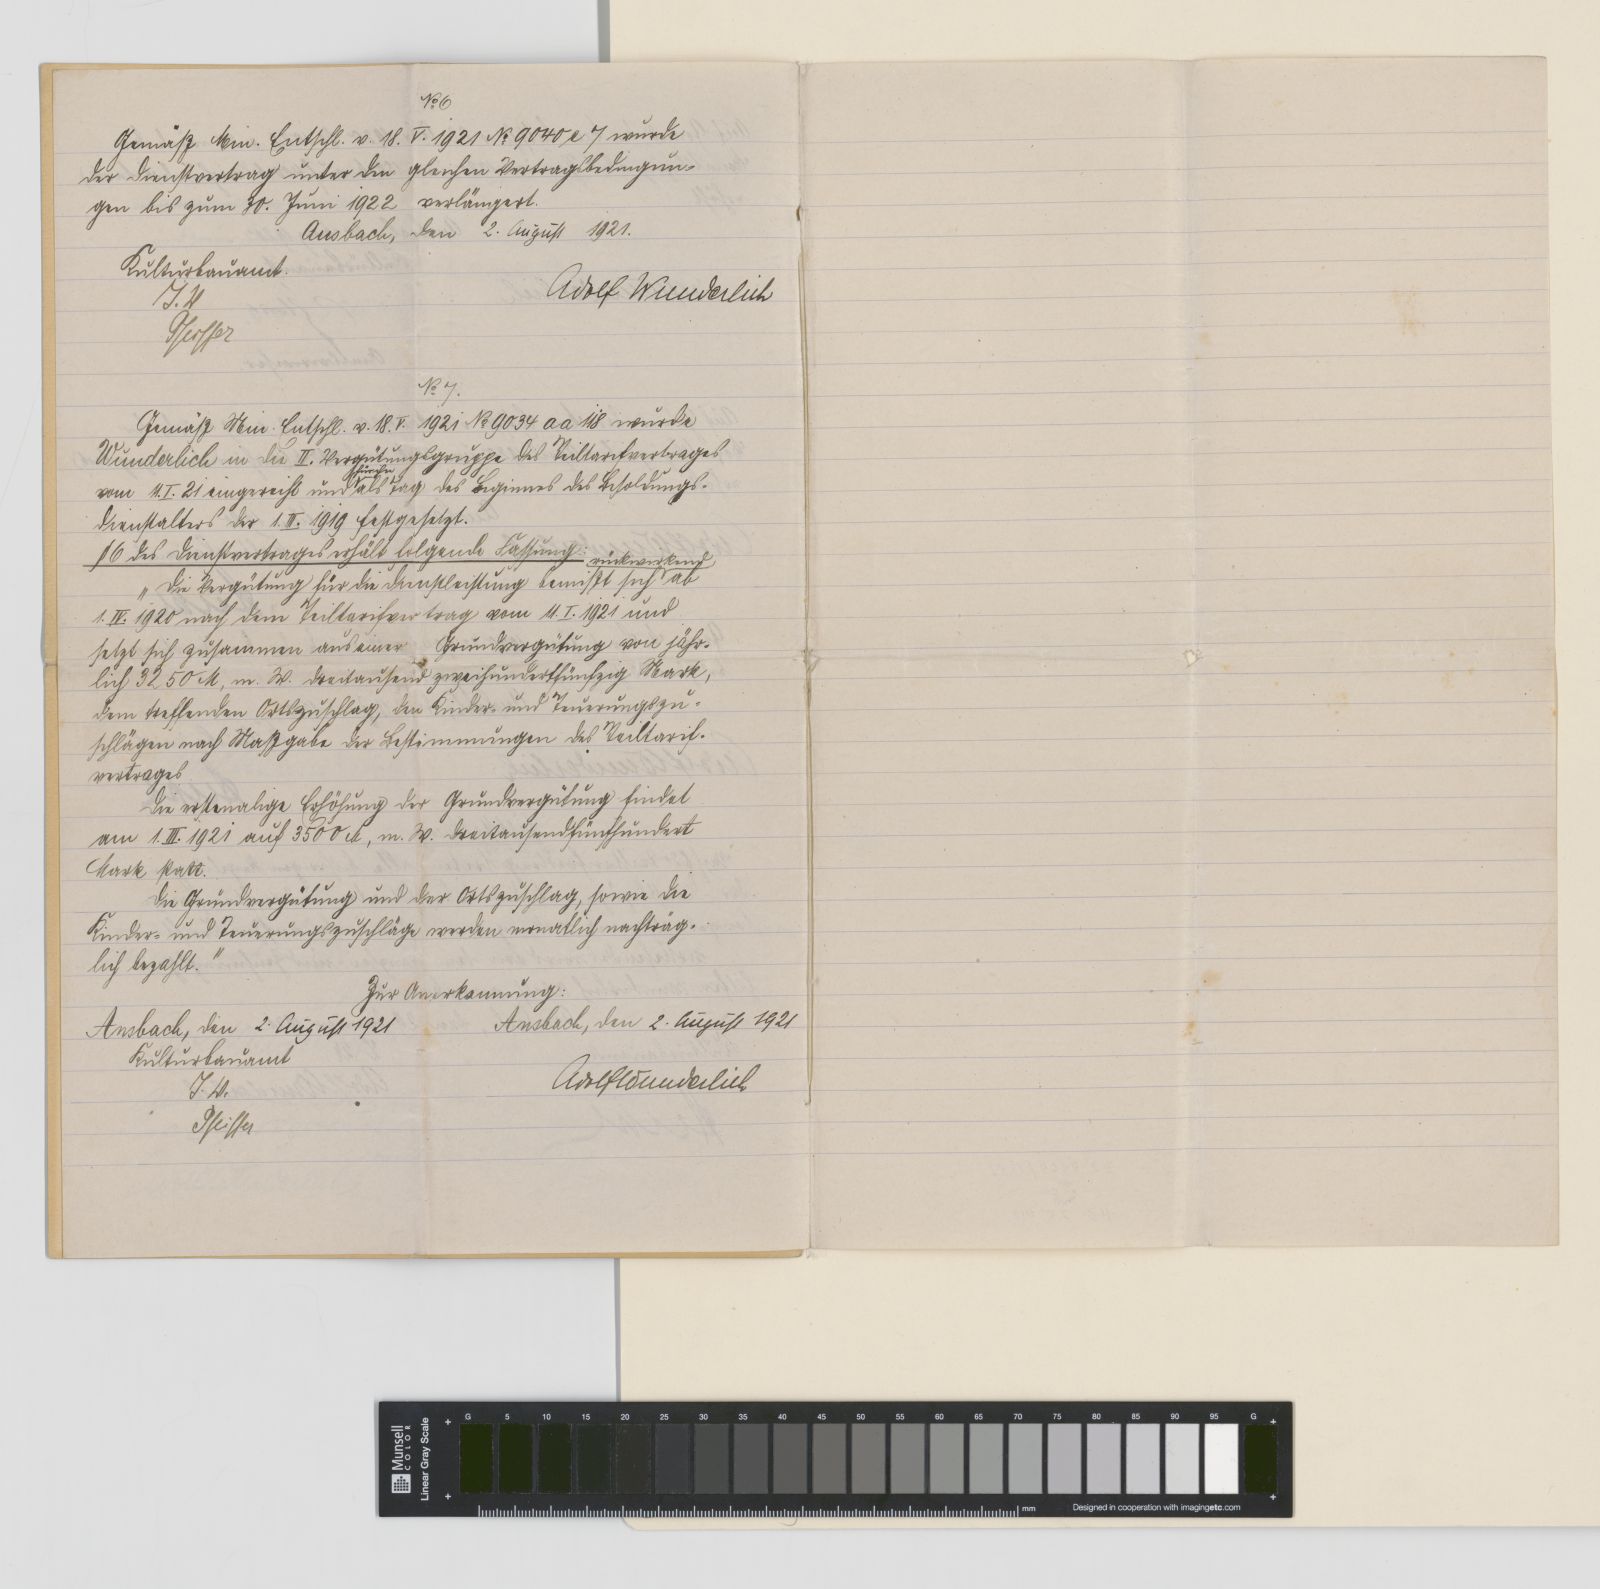 № 6
Gemäß Min. Entschl. v. 18. V. 1921 № 9040 e 7 wurde
der Dienstvertrag unter den gleichen Vertragsbedingun-
gen bis zum 30. Juni 1922 verlängert.
Ansbach, den 2. August 1921.
Kulturbauamt.
Adolf Wunderlich
I. V
Pfeiffer
№ 7.
Gemäß Min. Entschl. v. 18. V. 1921 № 9034 aa 118 wurde
Wunderlich in die II. Vergütungsgruppe des Teiltarifvertrages
vom 11. I. 21 eingereiht und als Tag des Beginnes des Besoldungs-
dienstalters der 1. III. 1919 festgesetzt.
§ 6 des Dienstvertrages erhält folgende Fassung:
rückwirkend
„Die Vergütung für die Dienstleistung bemißt sich ab
1. IV. 1920 nach dem Teiltarifvertrag vom 11. I. 1921 und
setzt sich zusammen aus einer Grundvergütung von jähr-
lich 3250 M, m. W. dreitausend zweihundertfünfzig Mark,
dem treffenden Ortszuschlag, den Kinder- und Teuerungszu-
schlägen nach Maßgabe der Bestimmungen des Teiltarif-
vertrages
Die erstmalige Erhöhung der Grundvergütung findet
am 1. III. 1921 auf 3500 M, m. W. dreitausendfünfhundert
Mark statt.
Die Grundvergütung und der Ortszuschlag, sowie die
Kinder- und Teuerungszuschläge werden monatlich nachträg-
lich bezahlt."
Zur Anerkennung:
Ansbach, den 2. August 1921
Ansbach, den 2. August 1921
Kulturbauamt
I. V.
Adolf Wunderlich
Pfeiffer
Munsell
COLOR
Linear Gray Scale
G 5 10 15 20 25 30 35 40 45 50 55 60 65 70 75 80 85 90 95 G
mm
Designed in cooperation with imagingetc.com